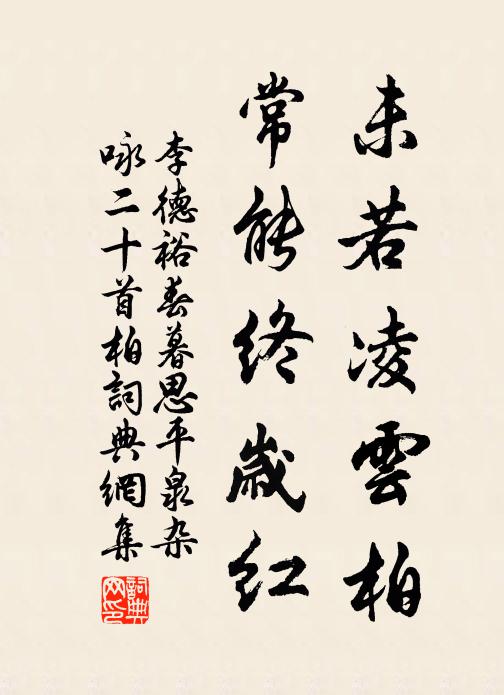 未若凌雲柏
常能終歳紅
李德裕春暮思平泉杂
咏二十首柏詞典網集
詞典網印